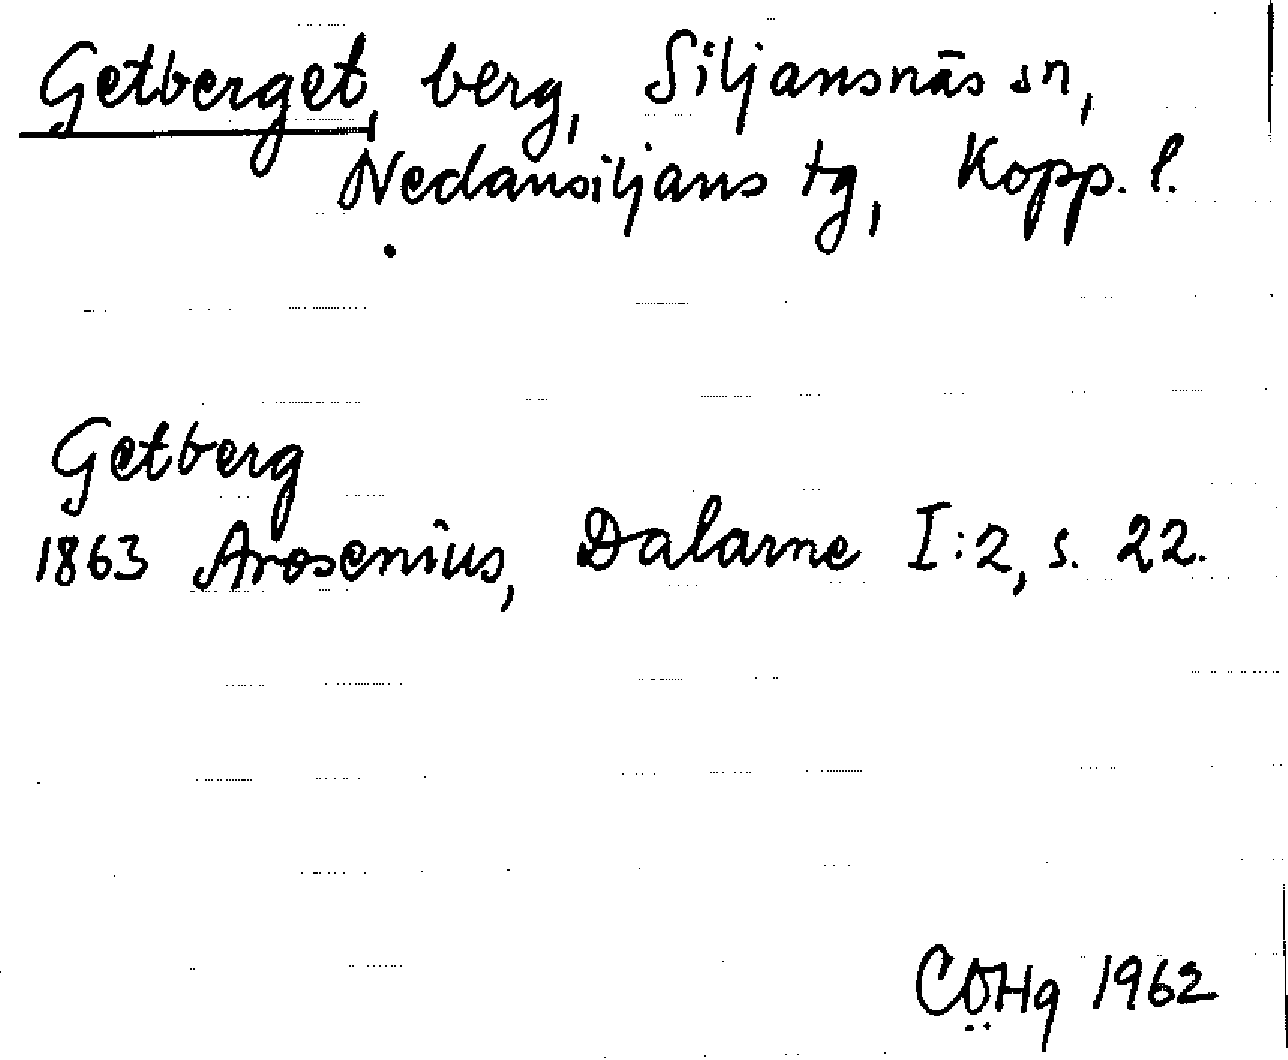 Getberget, berg, Siljansnäs sn,
Nedansiljans tg, Kopp. l.
Getberg
1863 Arosenius, Dalarne I:2, s. 22.
CÖHg 1962